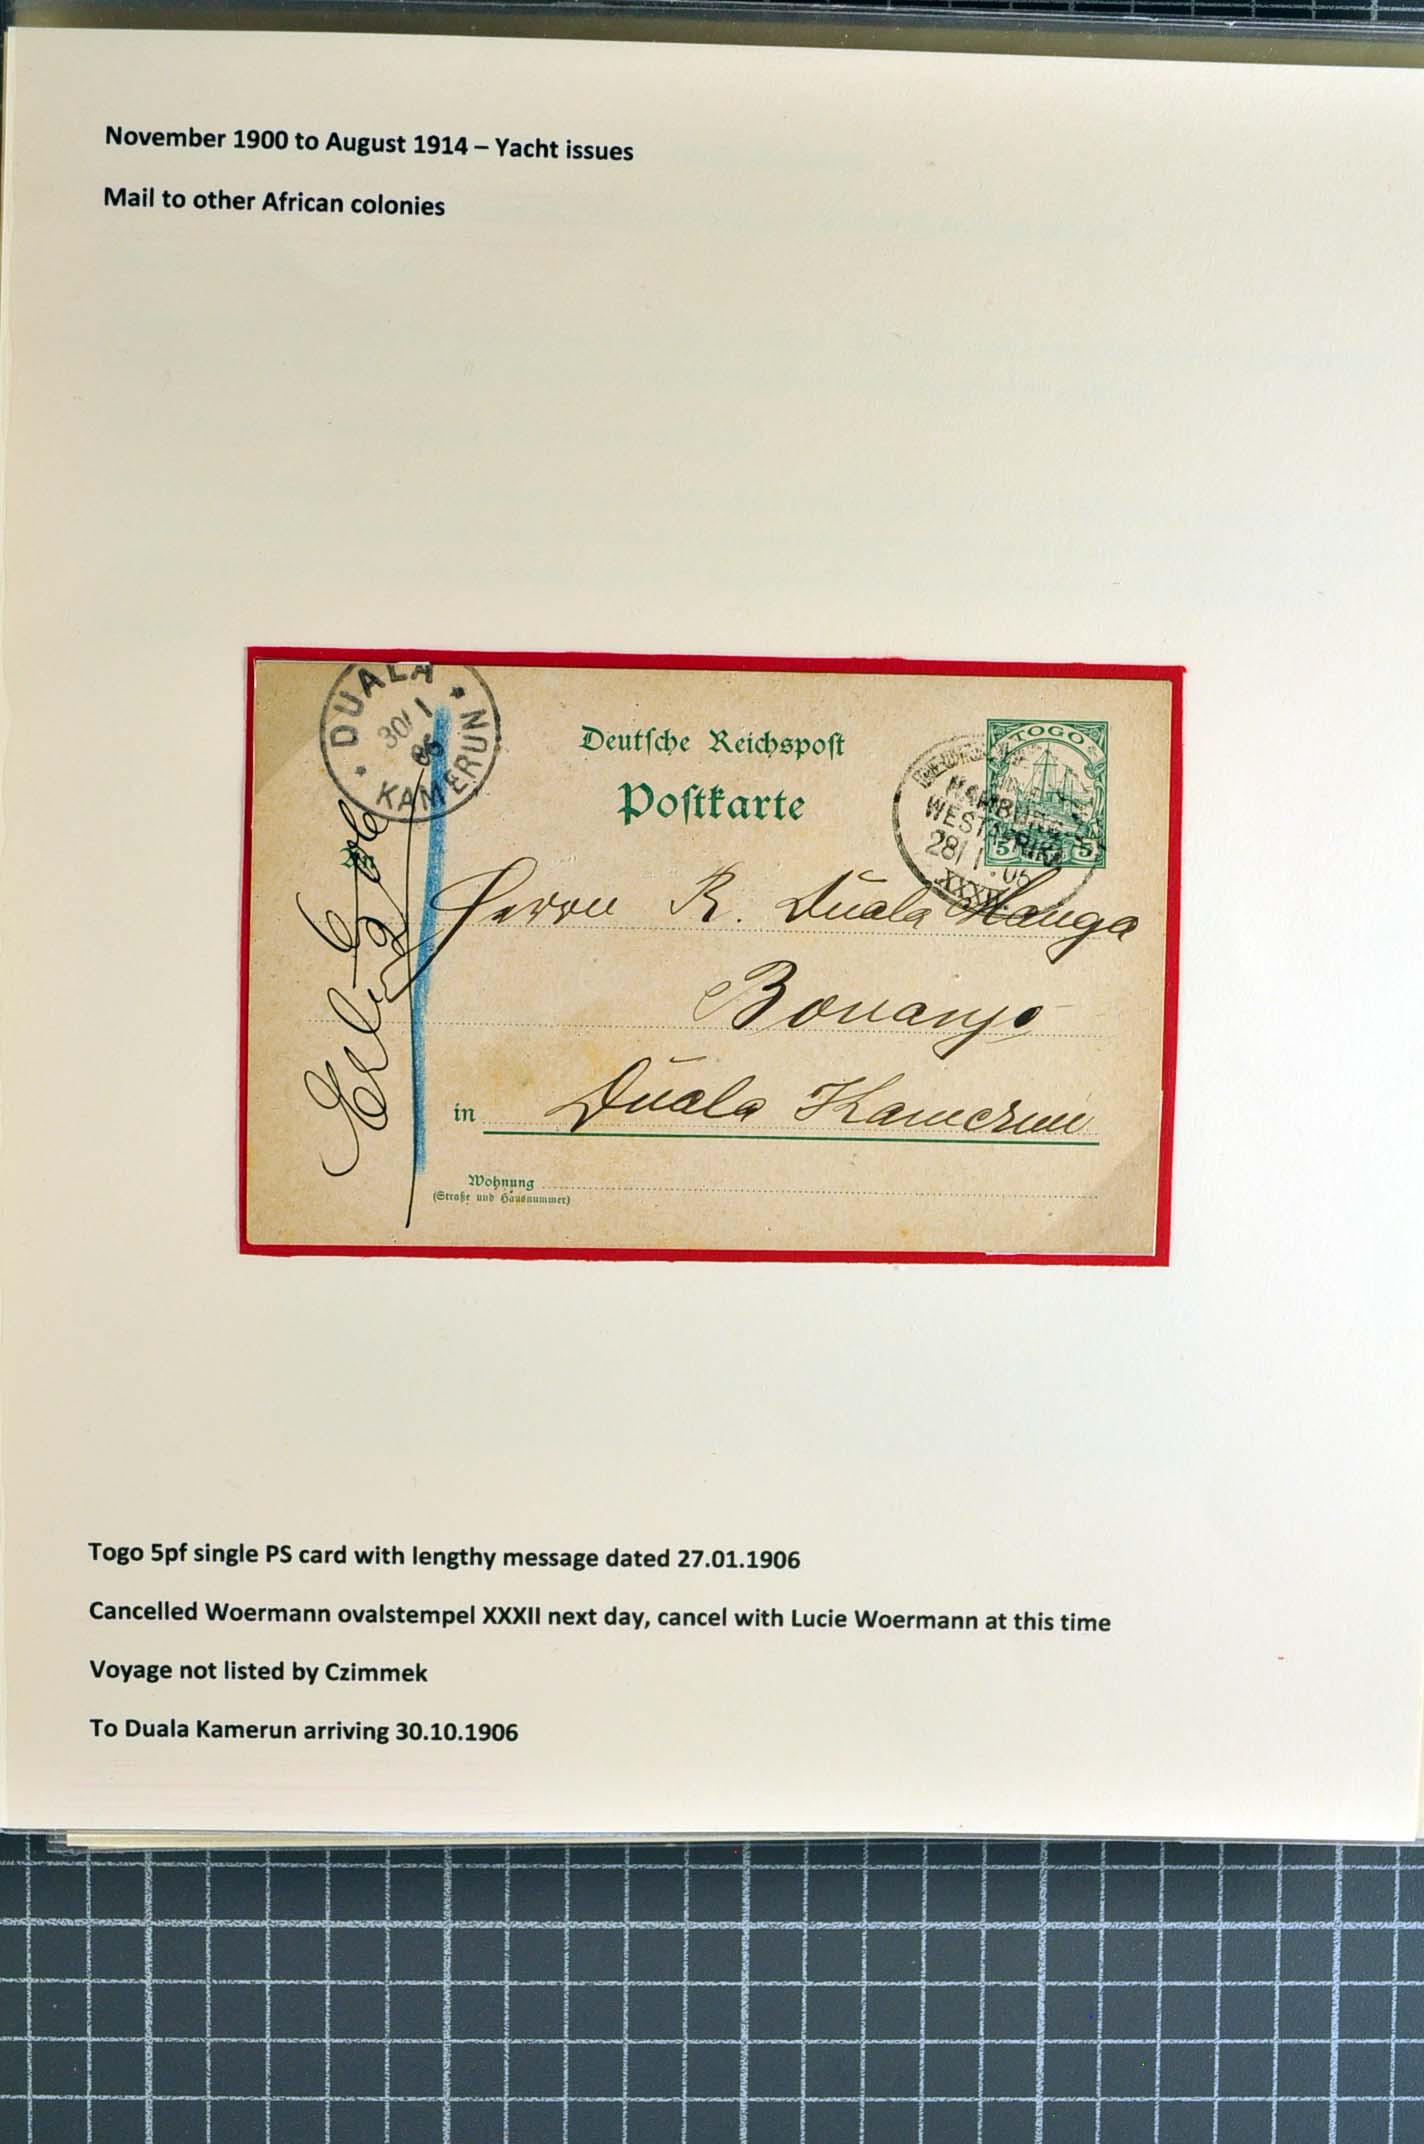 November 1900 to August 1914 – Yacht issues
Mail to other African colonies
DUALA
30/1
06
KAMERUN
Deutsche Reichspost
Postkarte
TOGO
5 5
HAMBURG
WESTAFRIKA
28/1.06
XXXII
An
Herrn R. Duala Manga
Bonanjo
in Duala Kamerun
Wohnung
(Straße und Hausnummer)
Togo 5pf single PS card with lengthy message dated 27.01.1906
Cancelled Woermann ovalstempel XXXII next day, cancel with Lucie Woermann at this time
Voyage not listed by Czimmek
To Duala Kamerun arriving 30.10.1906